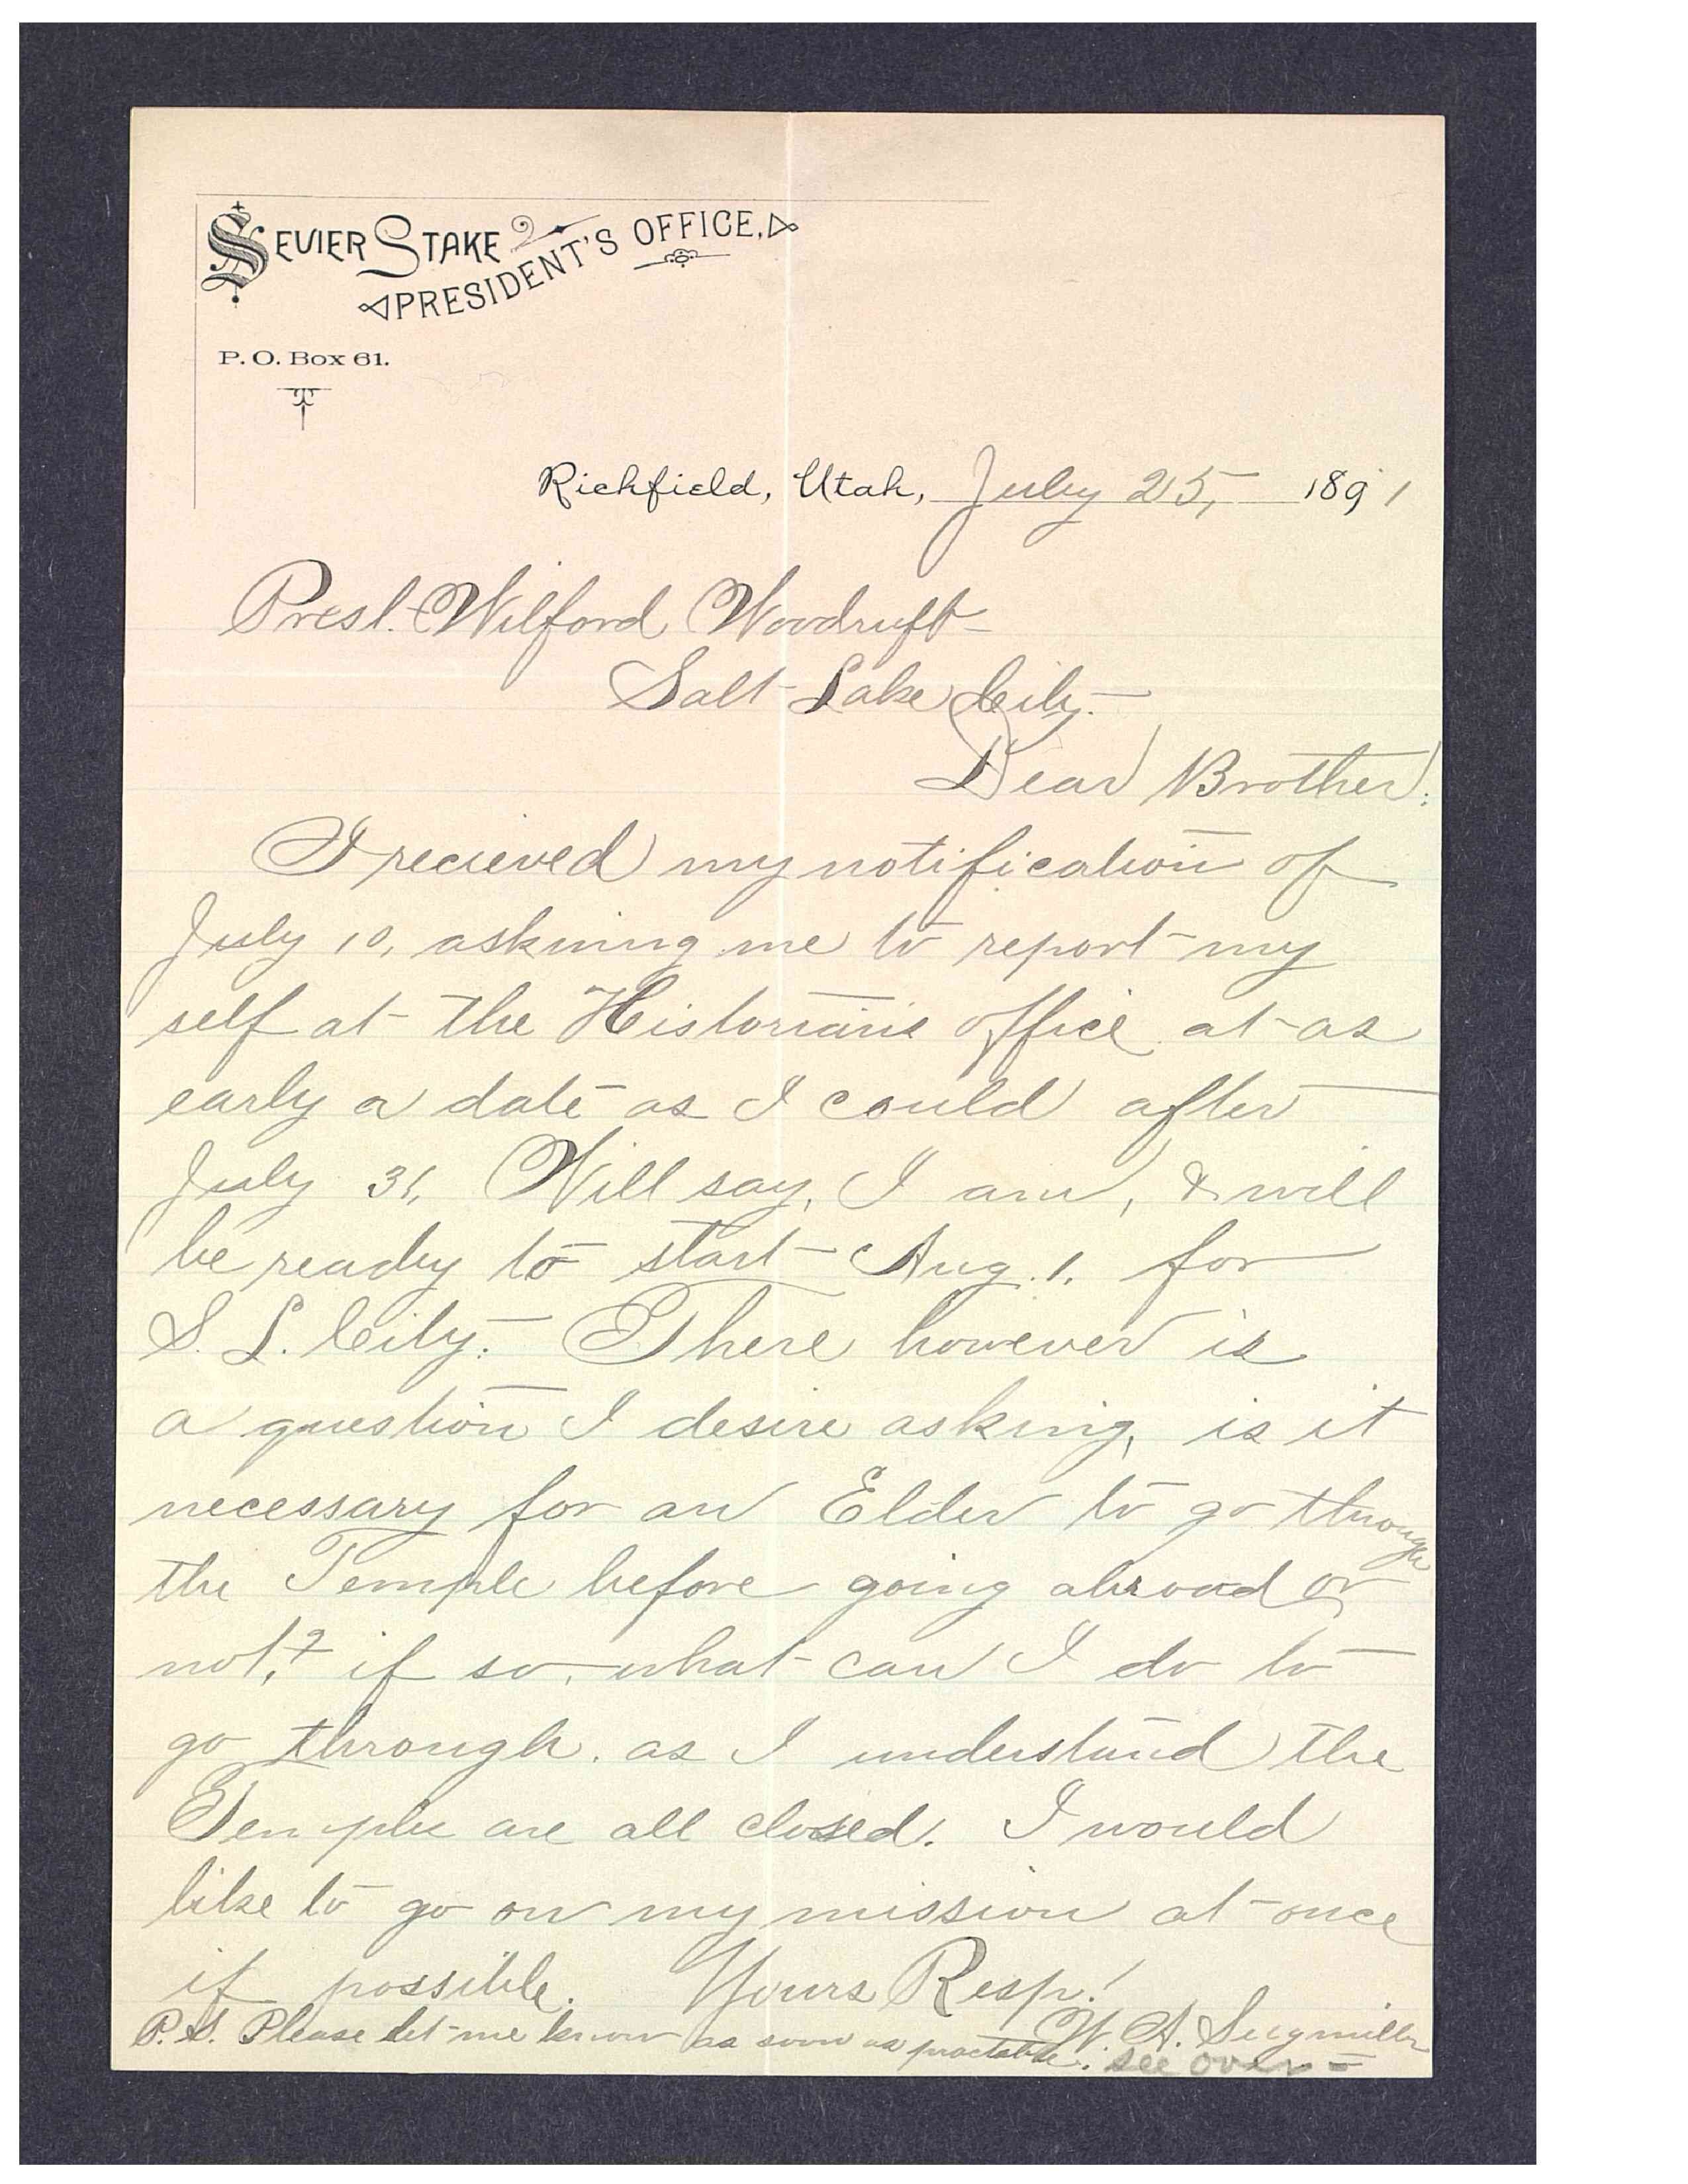 SEVIER STAKE
PRESIDENT'S OFFICE,
P. O. Box 61.
Richfield, Utah, July 25, 1891
Prest. Wilford Woodruff
Salt Lake City.
Dear Brother:
I recieved my notification of
July 10, askining me to report my
self at the Historians office at as
early a date as I could after
July 31, Will say, I am, & will
be ready to start Aug. 1. for
S. L. City. There however is
a question I desire asking, is it
necessary for an Elder to go through
the Temple before going abroad or
not,? if so, what can I do to
go through. as I understand the
Temple are all closed. I would
like to go on my mission at once
if possible. Yours Resp.
W. A. Seegmiller
P.S. Please let me know as soon as practable.
see over =